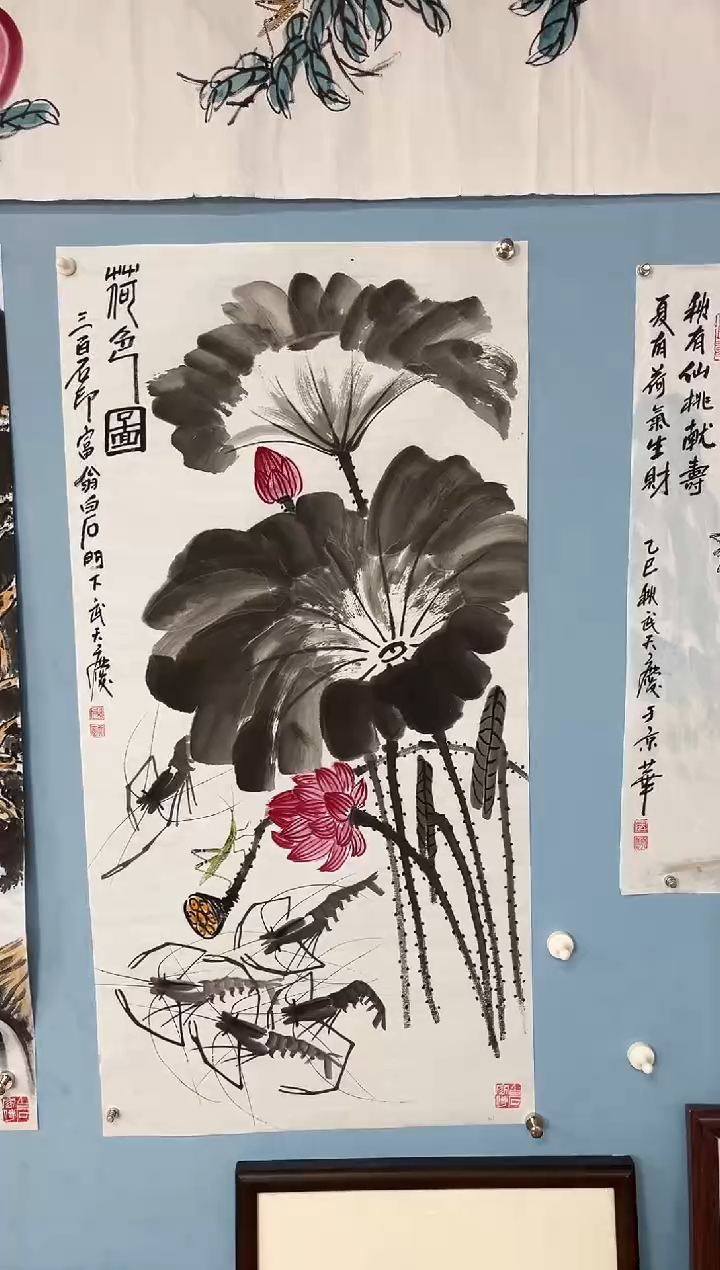 荷色圖
三百石印富翁白石門下武天慶
秋有仙桃献壽
夏有荷氣生財
乙巳秋武天慶于京華